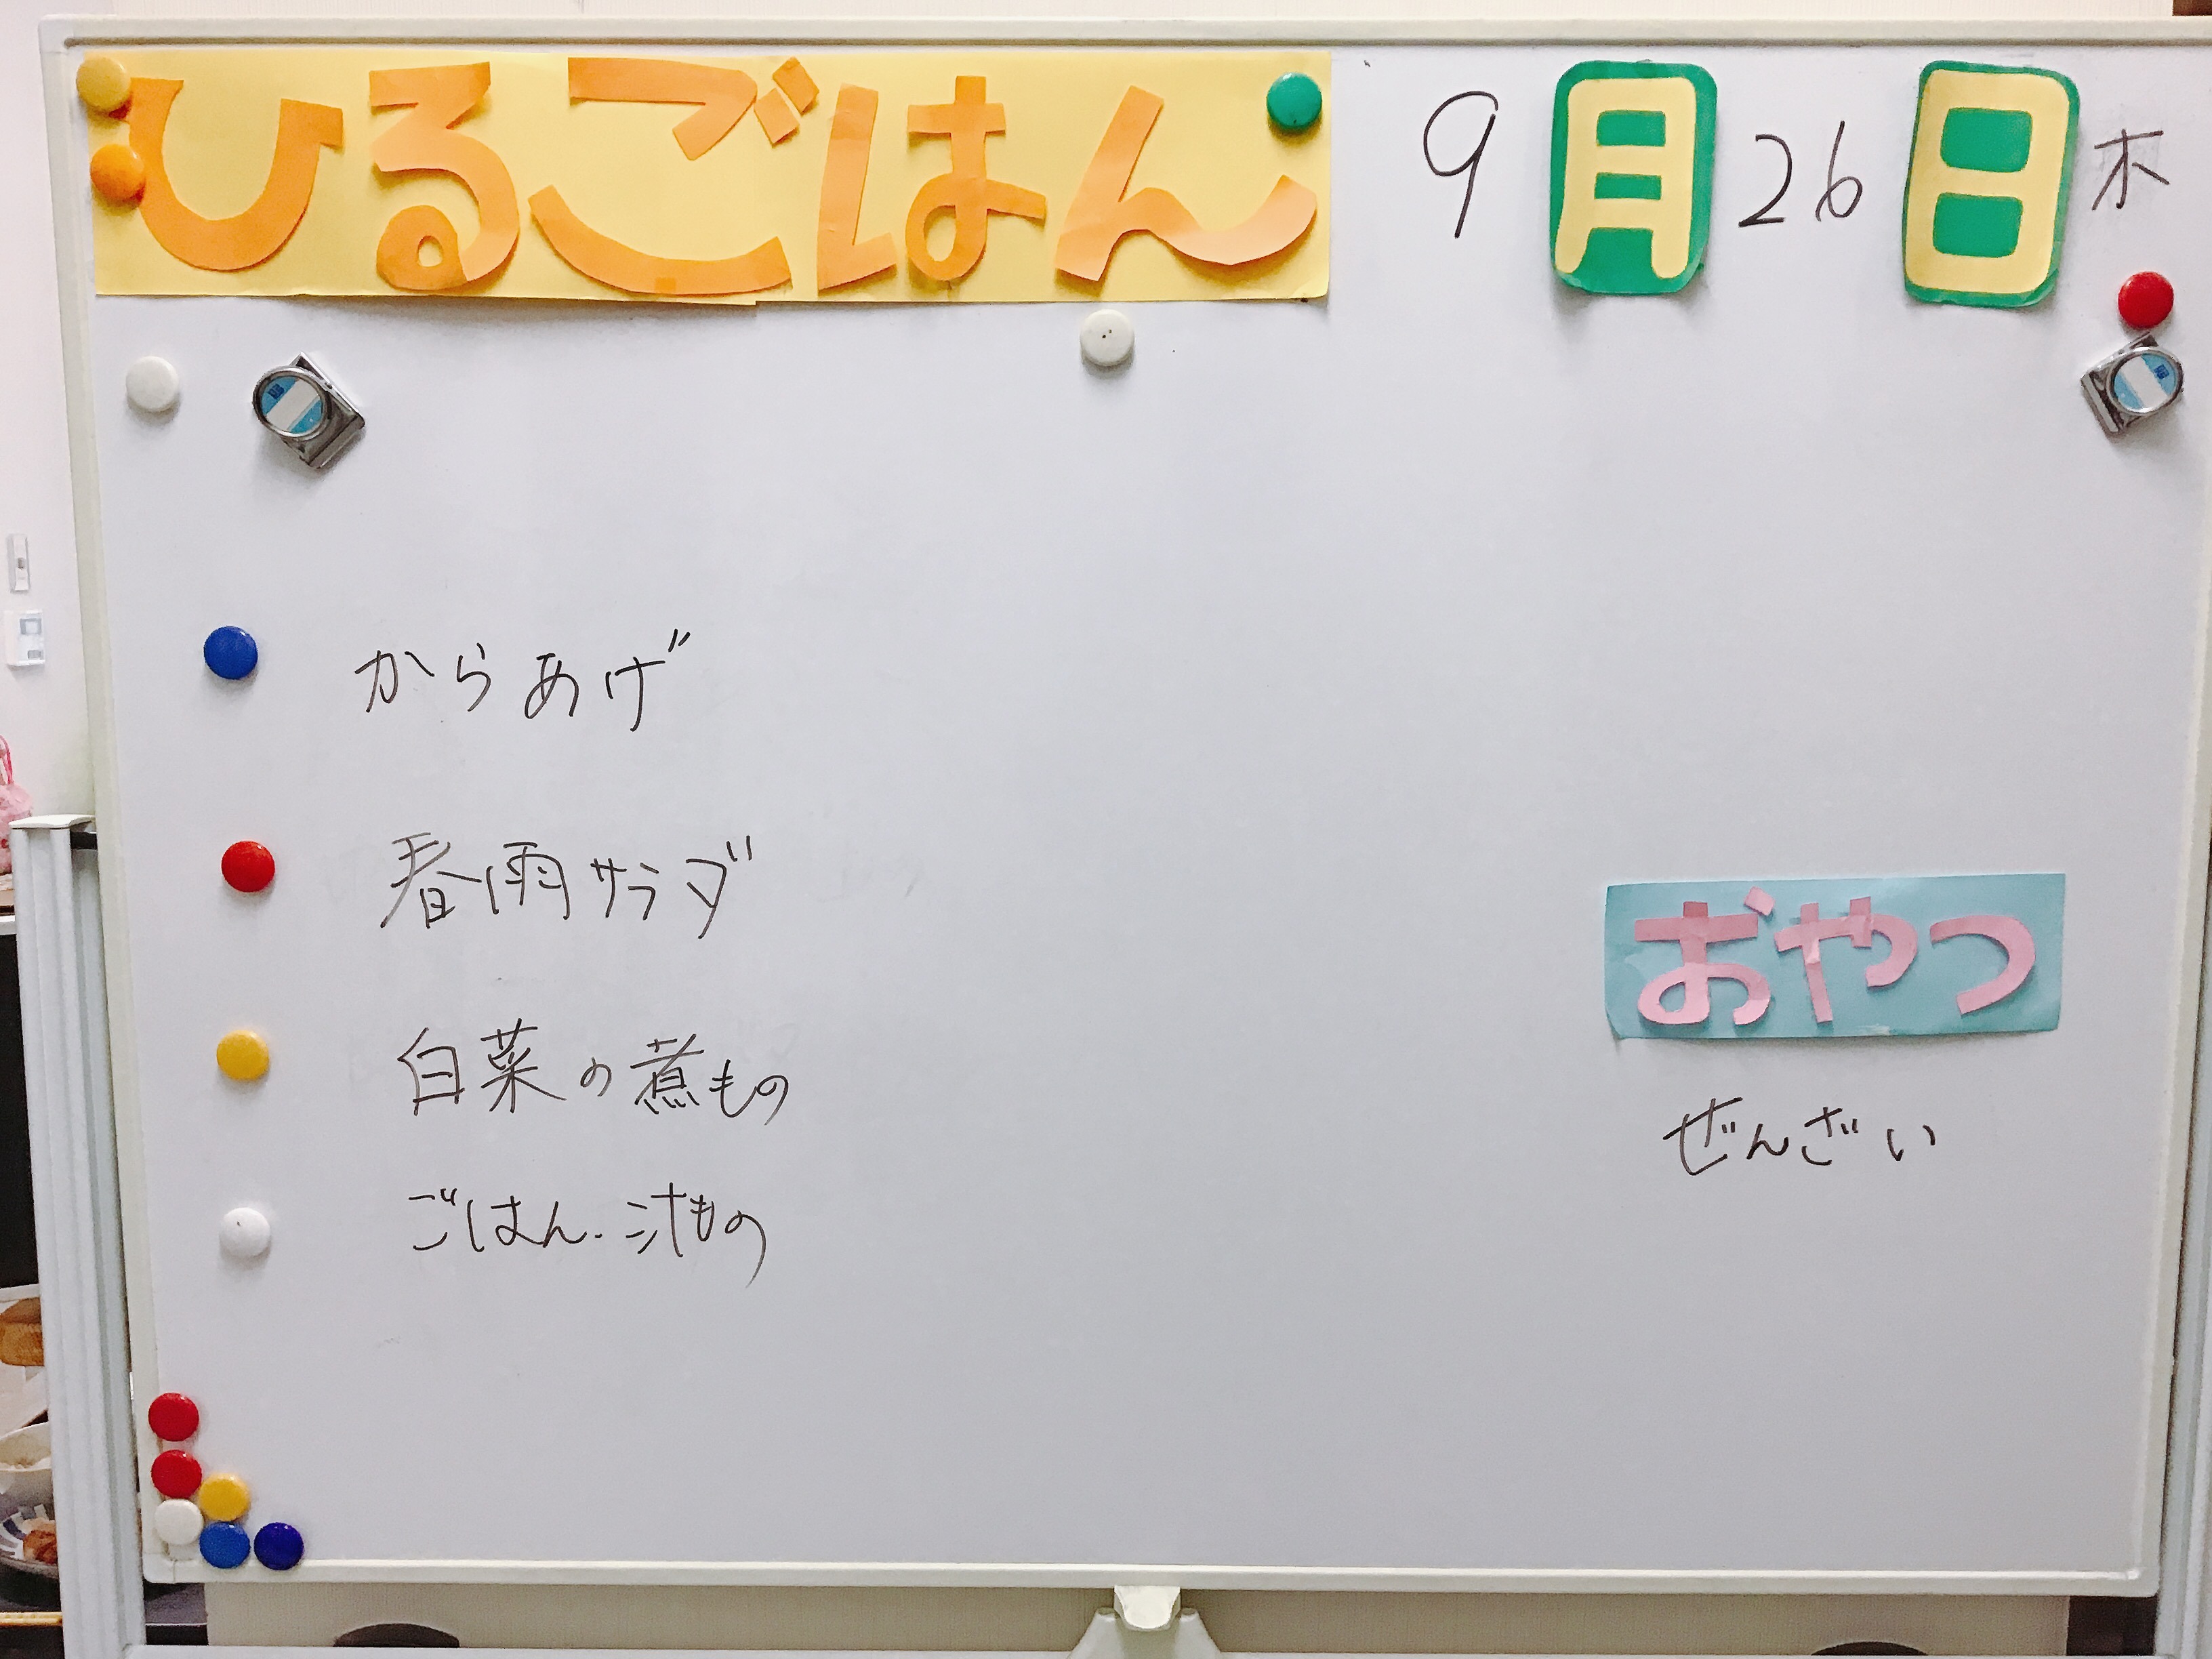 ひるごはん
9月26日 木
からあげ
春雨サラダ
白菜の煮もの
ごはん・汁もの
おやつ
ぜんざい